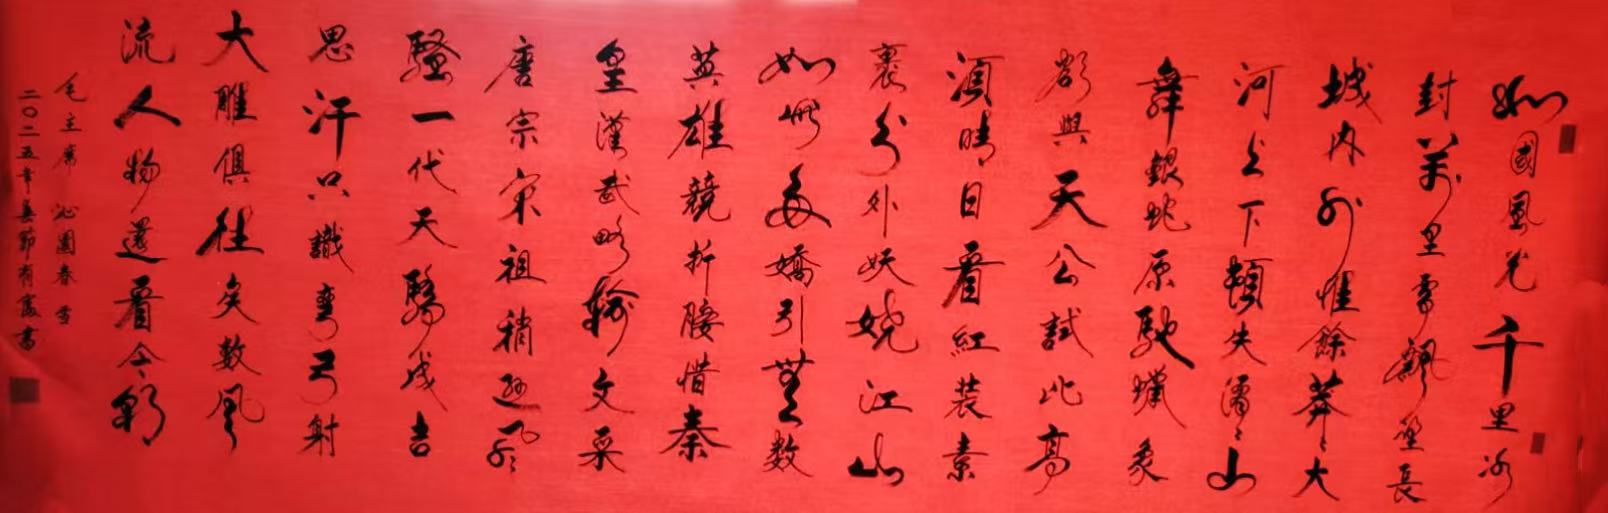 北國風光千里冰
封萬里雪飄望長
城內外惟餘莽〻大
河上下頓失滔〻山
舞銀蛇原馳蠟象
欲與天公試比高
須晴日看紅裝素
裹分外妖嬈江山
如此多嬌引無數
英雄競折腰惜秦
皇漢武略輸文采
唐宗宋祖稍遜風
騷一代天驕成吉
思汗只識彎弓射
大雕俱往矣數風
流人物還看今朝
毛主席 沁園春 雪
二〇二五年春節有慶書